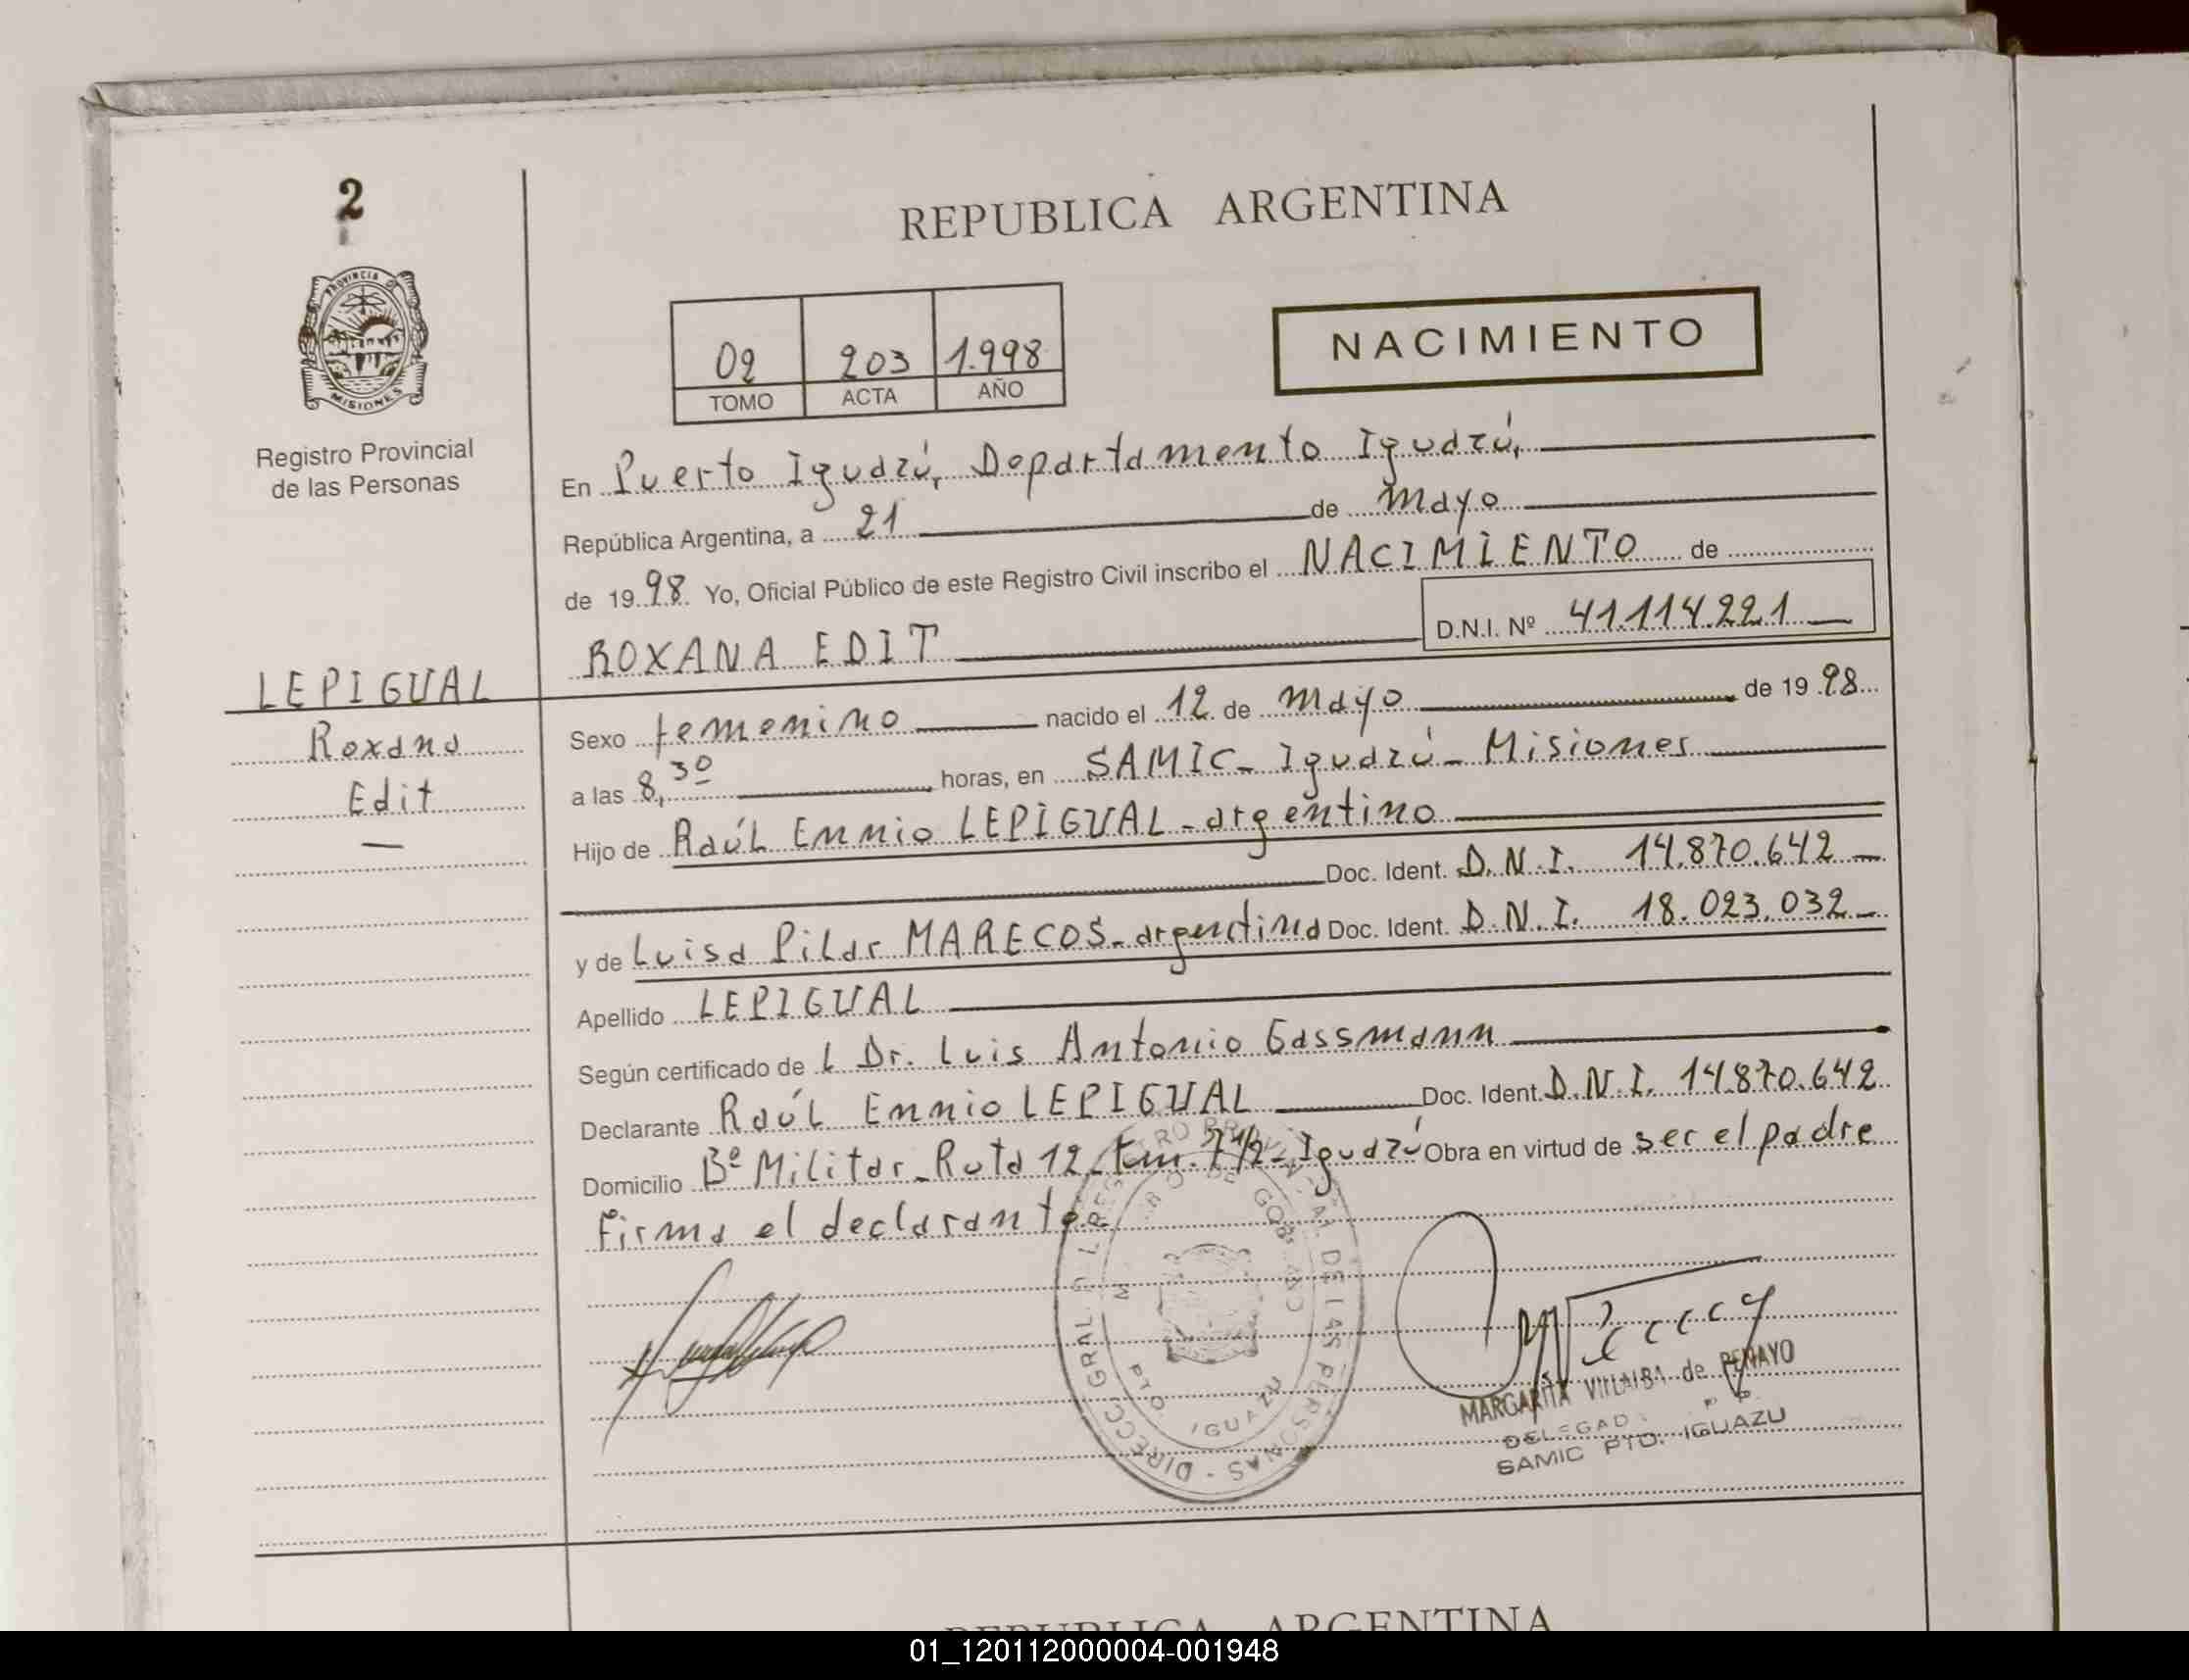 2
PROVINCIA DE
MISIONES
Registro Provincial
de las Personas
LEPIGUAL
Roxana
Edit
REPUBLICA ARGENTINA
02 203 1.998
TOMO ACTA AÑO
NACIMIENTO
En Puerto Iguazú, Departamento Iguazú,
República Argentina, a 21 de mayo
de 1998 Yo, Oficial Público de este Registro Civil inscribo el NACIMIENTO de
ROXANA EDIT D.N.I. Nº 41.114.221
Sexo femenino nacido el 12 de mayo de 1998
a las 8,30 horas, en SAMIC - Iguazú - Misiones
Hijo de Raúl Ennio LEPIGUAL - argentino
Doc. Ident. D.N.I. 14.870.642
y de Luisa Pilar MARECOS - argentina Doc. Ident. D.N.I. 18.023.032
Apellido LEPIGUAL
Según certificado de l Dr. Luis Antonio Gassmann
Declarante Raúl Ennio LEPIGUAL Doc. Ident. D.N.I. 14.870.642
Domicilio Bº Militar - Ruta 12 - Km. 7 1/2 - Iguazú Obra en virtud de ser el padre
Firma el declarante
DIRECC GRAL REGISTRO PROVINCIAL DE LAS PERSONAS
PTO. IGUAZU
MARGARITA VILLALBA de PENAYO
SAMIC PTO. IGUAZU
REPUBLICA ARGENTINA
01_120112000004-001948